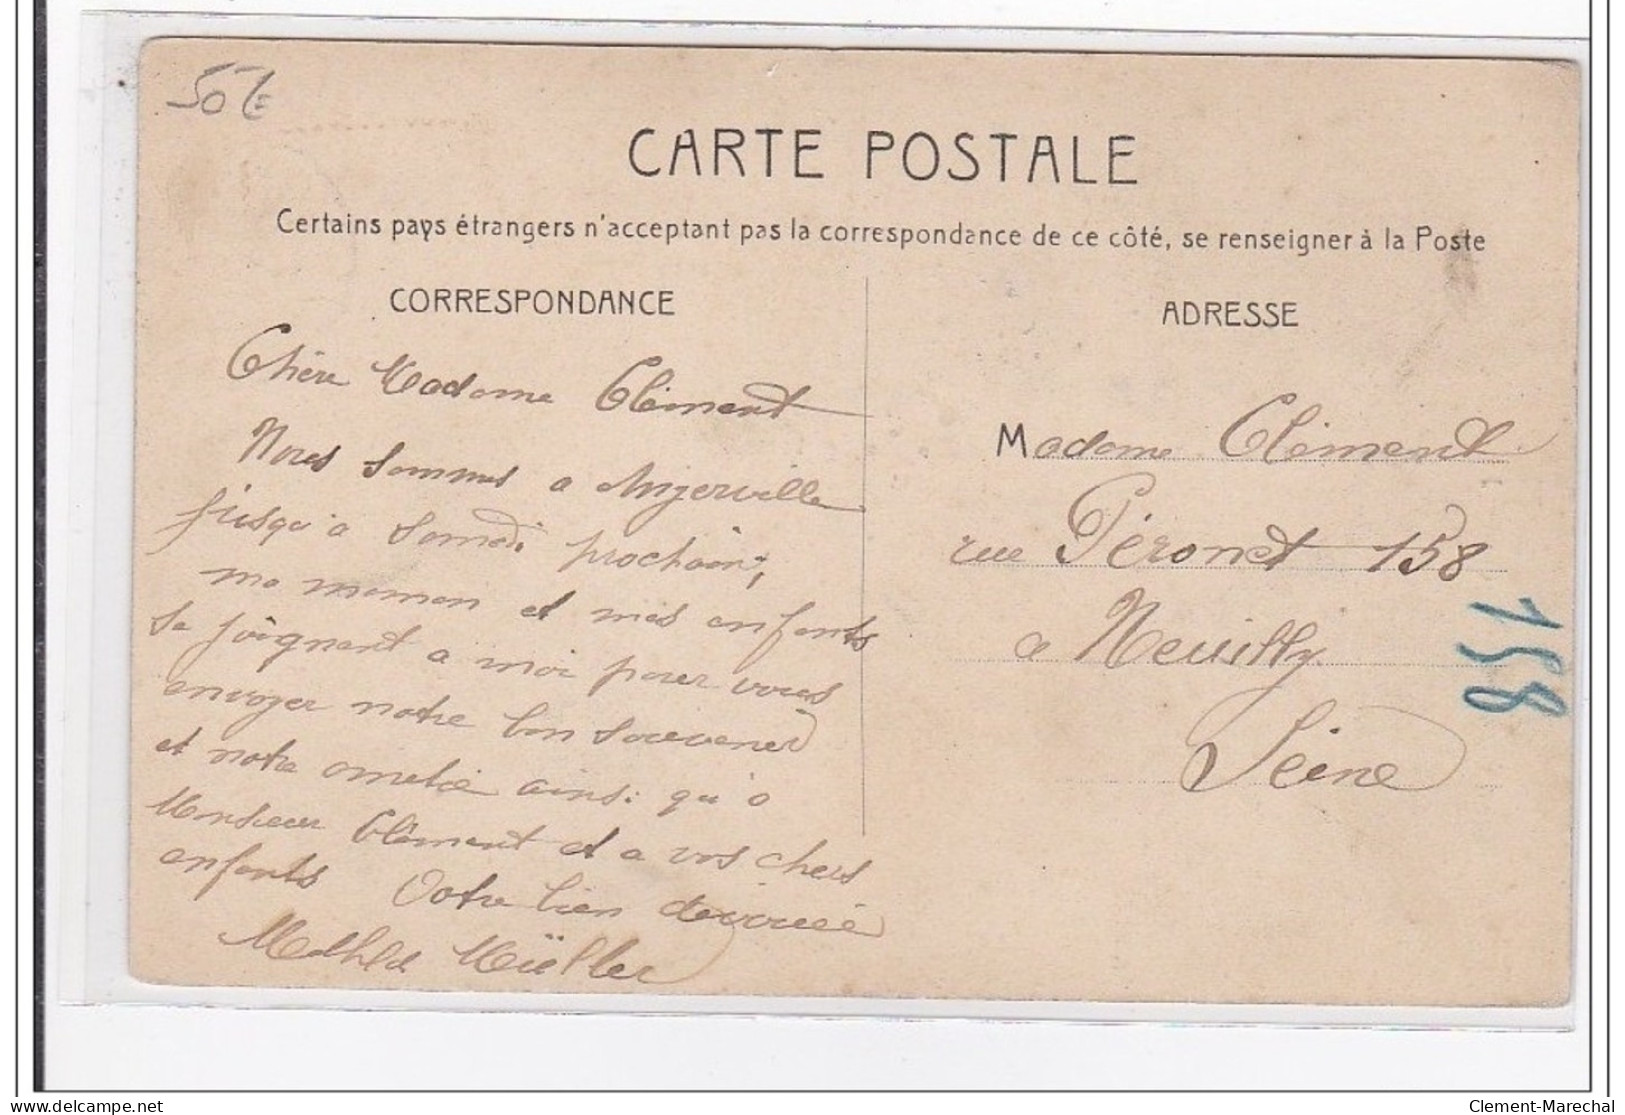 50€
CARTE POSTALE
Certains pays étrangers n'acceptant pas la correspondance de ce côté, se renseigner à la Poste
CORRESPONDANCE
Chère Madame Clément
Nous sommes a Angerville
jusqu'a samedi prochain,
ma maman et mes enfants
se joignent a moi pour vous
envoyer notre bon souvenir
et notre amitié ainsi qu'a
Monsieur Clément et a vos chers
enfants Votre bien dévouée
Mathilde Müller
ADRESSE
Madame Clément
rue Péronet 158
a Neuilly
Seine
158
delcampe.net
Clement-Marechal